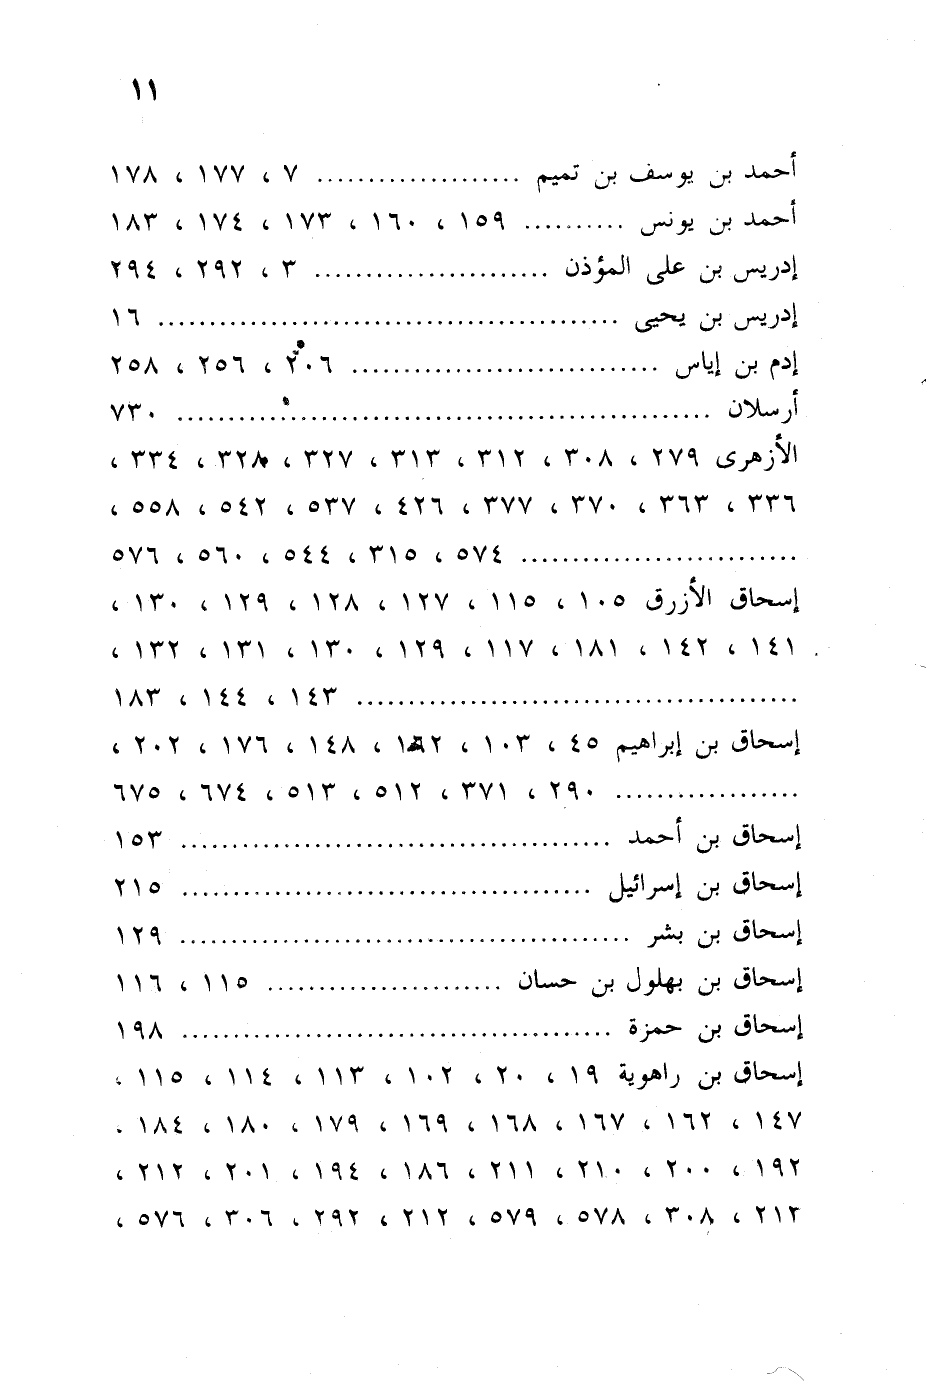 ١١
أحمد بن يوسف بن تميم .................... ٧ ، ١٧٧ ، ١٧٨
أحمد بن يونس .......... ١٥٩ ، ١٦٠ ، ١٧٣ ، ١٧٤ ، ١٨٣
إدريس بن على المؤذن ....................... ٣ ، ٢٩٢ ، ٢٩٤
إدريس بن يحيى ............................................. ١٦
إدم بن إياس .............................. ٢٠٦ ، ٢٥٦ ، ٢٥٨
أرسلان .................................................... ٧٣٠
الأزهرى ٢٧٩ ، ٣٠٨ ، ٣١٢ ، ٣١٣ ، ٣٢٧ ، ٣٢٨ ، ٣٣٤ ،
٣٣٦ ، ٣٦٣ ، ٣٧٠ ، ٣٧٧ ، ٤٢٦ ، ٥٣٧ ، ٥٤٢ ، ٥٥٨ ،
........................... ٥٧٤ ، ٣١٥ ، ٥٤٤ ، ٥٦٠ ، ٥٧٦
إسحاق الأزرق ١٠٥ ، ١١٥ ، ١٢٧ ، ١٢٨ ، ١٢٩ ، ١٣٠ ،
١٤١ ، ١٤٢ ، ١٨١ ، ١١٧ ، ١٢٩ ، ١٣٠ ، ١٣١ ، ١٣٢ ،
........................................... ١٤٣ ، ١٤٤ ، ١٨٣
إسحاق بن إبراهيم ٤٥ ، ١٠٣ ، ، ١٤٨ ، ١٧٦ ، ٢٠٢ ،
.................. ٢٩٠ ، ٣٧١ ، ٥١٢ ، ٥١٣ ، ٦٧٤ ، ٦٧٥
إسحاق بن أحمد .......................................... ١٥٣
إسحاق بن إسرائيل ........................................ ٢١٥
إسحاق بن بشر ............................................ ١٢٩
إسحاق بن بهلول بن حسان ....................... ١١٥ ، ١١٦
إسحاق بن حمزة .......................................... ١٩٨
إسحاق بن راهوية ١٩ ، ٢٠ ، ١٠٢ ، ١١٣ ، ١١٤ ، ١١٥ ،
١٤٧ ، ١٦٢ ، ١٦٧ ، ١٦٨ ، ١٦٩ ، ١٧٩ ، ١٨٠ ، ١٨٤ .
١٩٢ ، ٢٠٠ ، ٢١٠ ، ٢١١ ، ١٨٦ ، ١٩٤ ، ٢٠١ ، ٢١٢ ،
٢١٢ ، ٣٠٨ ، ٥٧٨ ، ٥٧٩ ، ٢١٢ ، ٢٩٢ ، ٣٠٦ ، ٥٧٦ ،